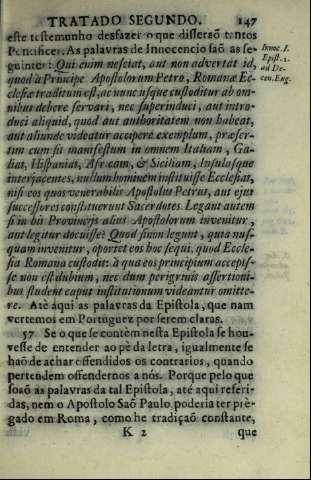 TRATADO SEGUNDO. 147
este testemunho desfazer o que disserão tantos
Pontifices. As palavras de Innocencio saõ as se-
guintes: Qui enim nesciat, aut non advertat id,
quod à Principe Apostolorum Petro, Romanæ Ec-
clesiæ traditum est, ac nunc usque custoditur ab om-
nibus debere servari, nec superinduci, aut intro-
duci aliquid, quod aut authoritatem non habeat,
aut aliunde videatur accipere exemplum, præser-
tim cum sit manifestum in omnem Italiam, Ga-
lias, Hispanias, Africam, & Siciliam, Insulasque
interjacentes, nullum hominem instituisse Ecclesias,
nisi eos quos venerabilis Apostolus Petrus, aut ejus
successores constituerunt Sacerdotes. Legant autem
si in his Provincijs alius Apostolorum invenitur,
aut legitur docuisse? Quod si non legunt, quia nus-
quam invenitur, oportet eos hoc sequi, quod Eccle-
sia Romana custodit: à qua eos principium accepis-
se non est dubium, nec dum perigrinis assertioni-
bus student caput institutionum videantur omitte-
re. Atè aqui as palavras da Epistola, que nam
vertemos em Portuguez por serem claras.
57 Se o que se contèm nesta Epistola se hou-
vesse de entender ao pè da letra, igualmente se
haõ de achar offendidos os contrarios, quando
pertendem offendernos a nós. Porque pelo que
soaõ as palavras da tal Epistola, até aqui referi-
das, nem o Apostolo Saõ Paulo poderia ter prè-
gado em Roma, como he tradiçaõ constante,
K 2 que
Innoc. I.
Epist. 1.
ad De-
cen. Eug.